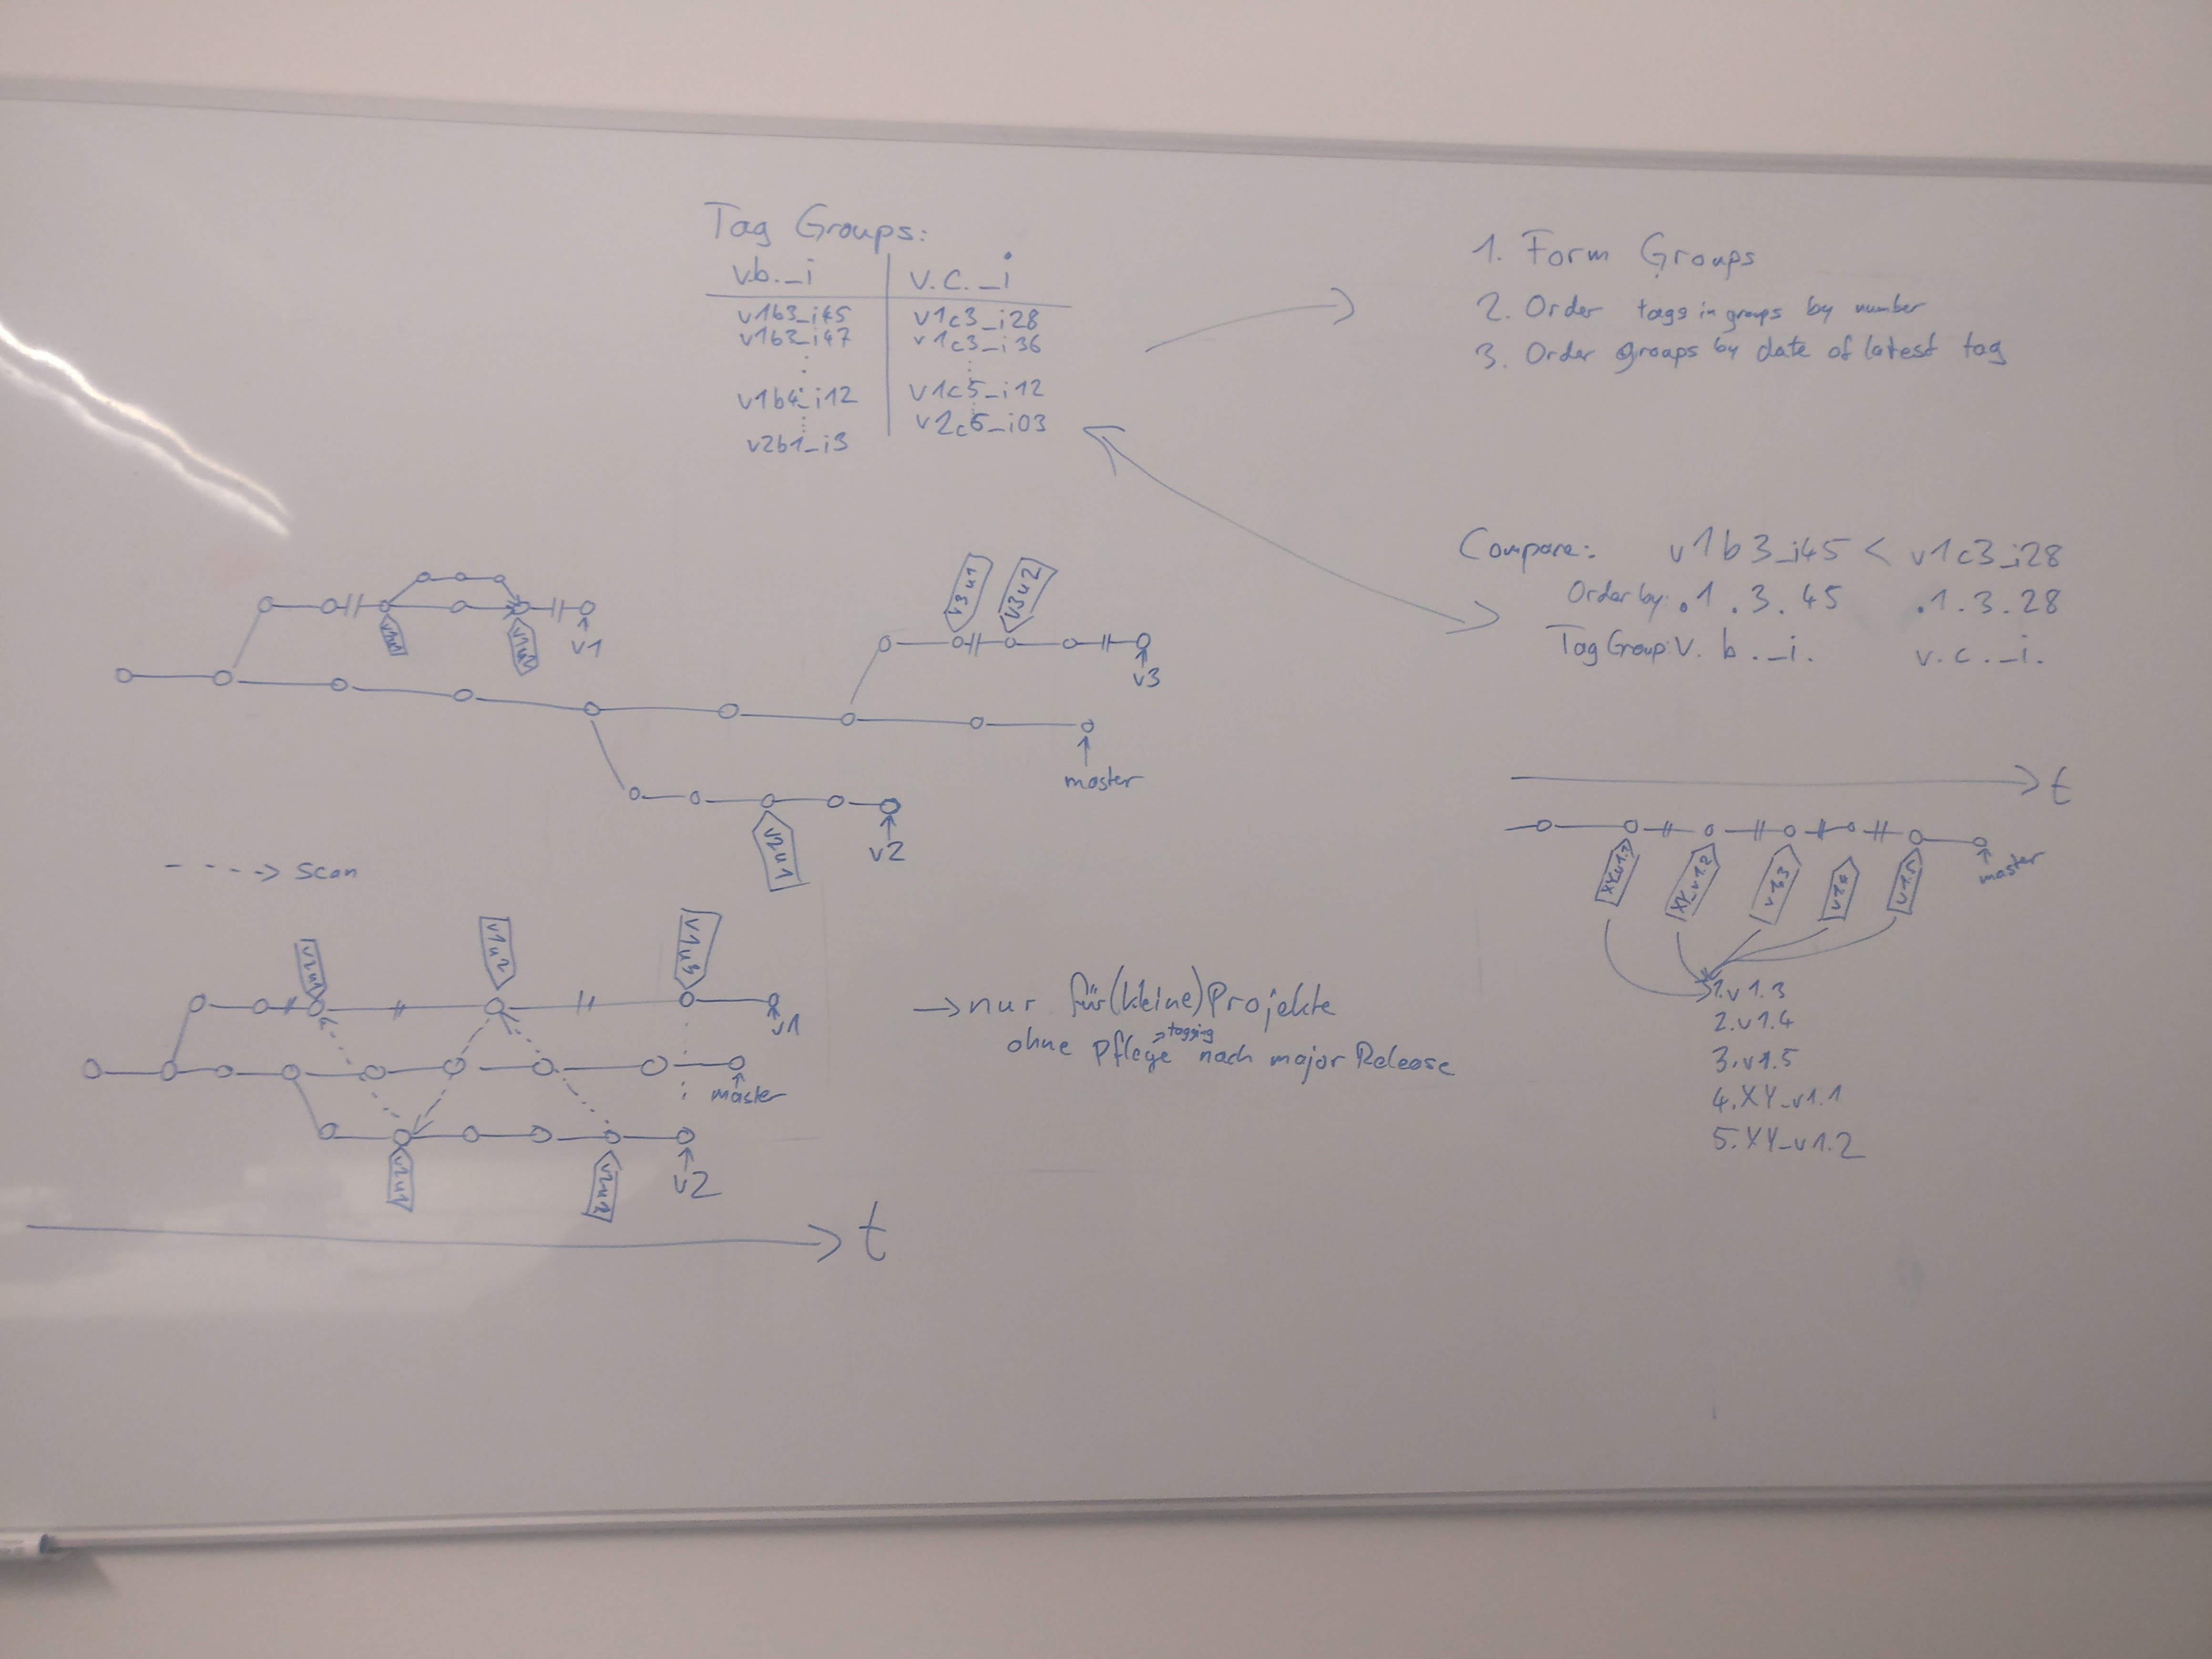 Tag Groups:
v.b._i
v.c._i
v1b3_i45
v1c3_i28
v1b3_i47
v1c3_i36
v1b4_i12
v1c5_i12
v2b1_i3
v2c6_i03
1. Form Groups
2. Order tags in groups by number
3. Order groups by date of latest tag
Compare: v1b3_i45 < v1c3_i28
Order by: .1.3.45 .1.3.28
Tag Group: v.b._i. v.c._i.
v1
v3u1
v3u2
v3
master
v2u1
v2
----> scan
v1u2
v1u3
v1
master
v2u1
v2u2
v2
t
→ nur für (kleine) Projekte
ohne Pflege → tagging nach major Release
t
XY_v1.1
XY_v1.2
v1.3
v1.4
v1.5
master
1.v1.3
2.v1.4
3.v1.5
4.XY_v1.1
5.XY_v1.2